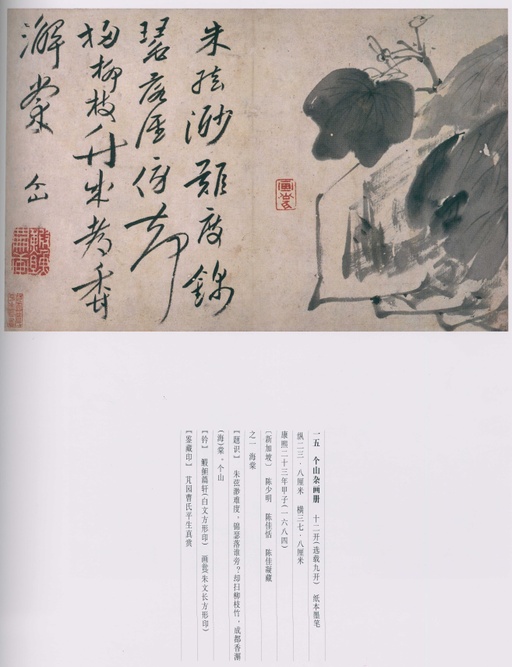 朱絃渺難度錦
瑟落誰傍却
掃柳枝竹成都香
澥棠 个山
一五 个山杂画册 十二开(选载九开) 纸本墨笔
纵二三·八厘米 横三七·八厘米
康熙二十三年甲子(一六八四)
(新加坡) 陈少明 陈佳恬 陈佳凝藏
之一 海棠
【题识】 朱弦渺难度，锦瑟落谁旁？却扫柳枝竹，成都香澥
(海)棠。个山
【钤】 轩(白文方形印) 画(朱文长方形印)
【鉴藏印】 芃园曹氏平生真赏